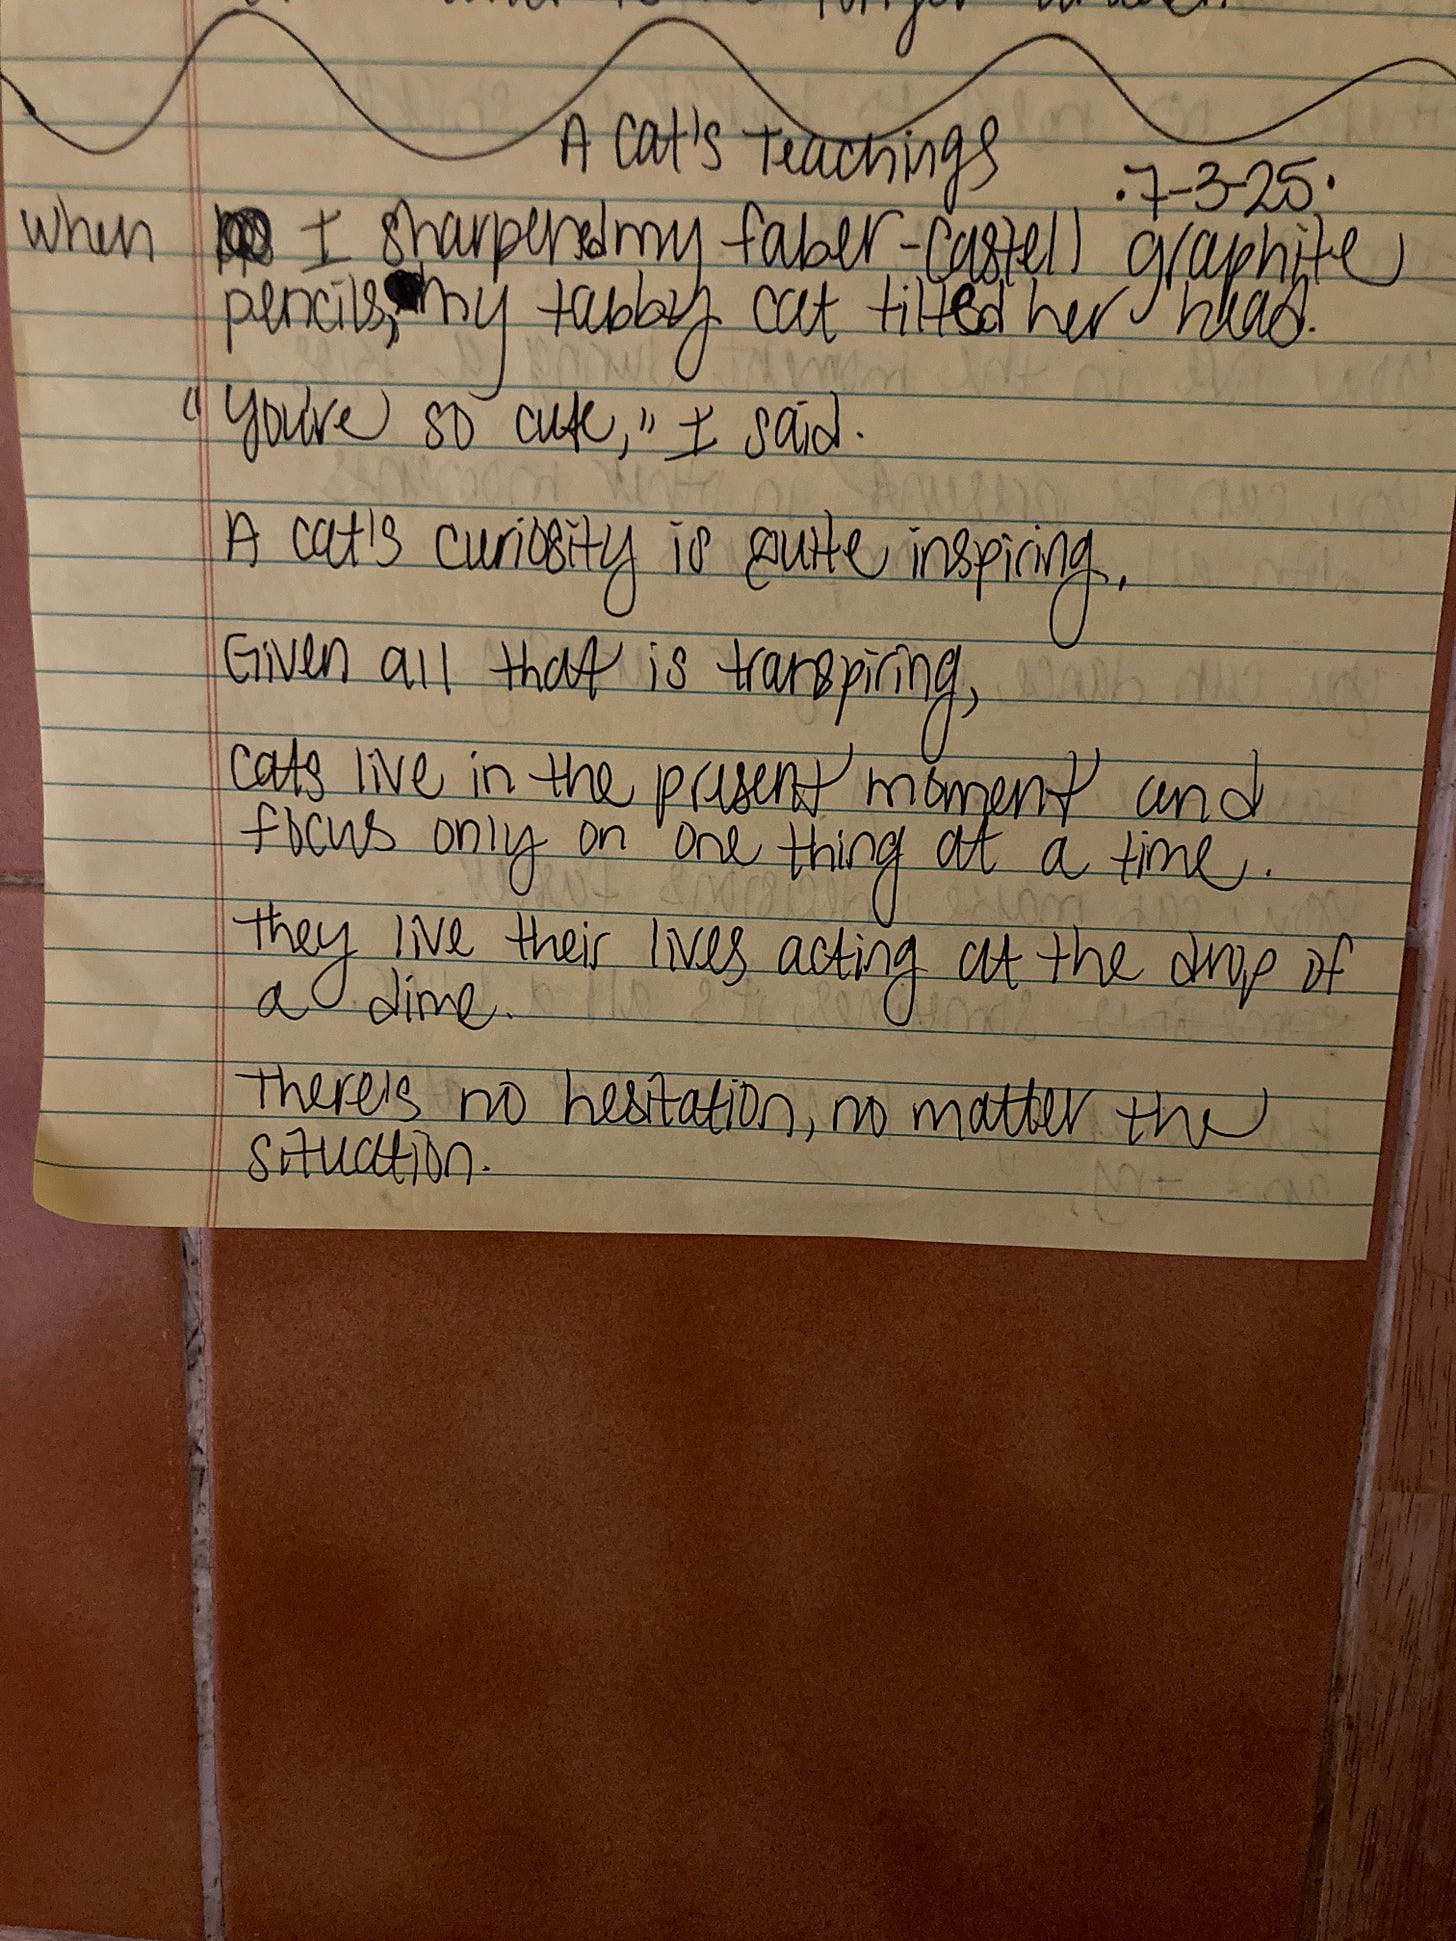 longer
A Cat's Teachings
·7-3-25·
When I sharpened my faber-castell graphite
pencils, my tabby cat tilted her head.
"You're so cute," I said.
A cat's curiosity is quite inspiring.
Given all that is transpiring,
cats live in the present moment and
focus only on one thing at a time.
They live their lives acting at the drop of
a dime.
There's no hesitation, no matter the
situation.